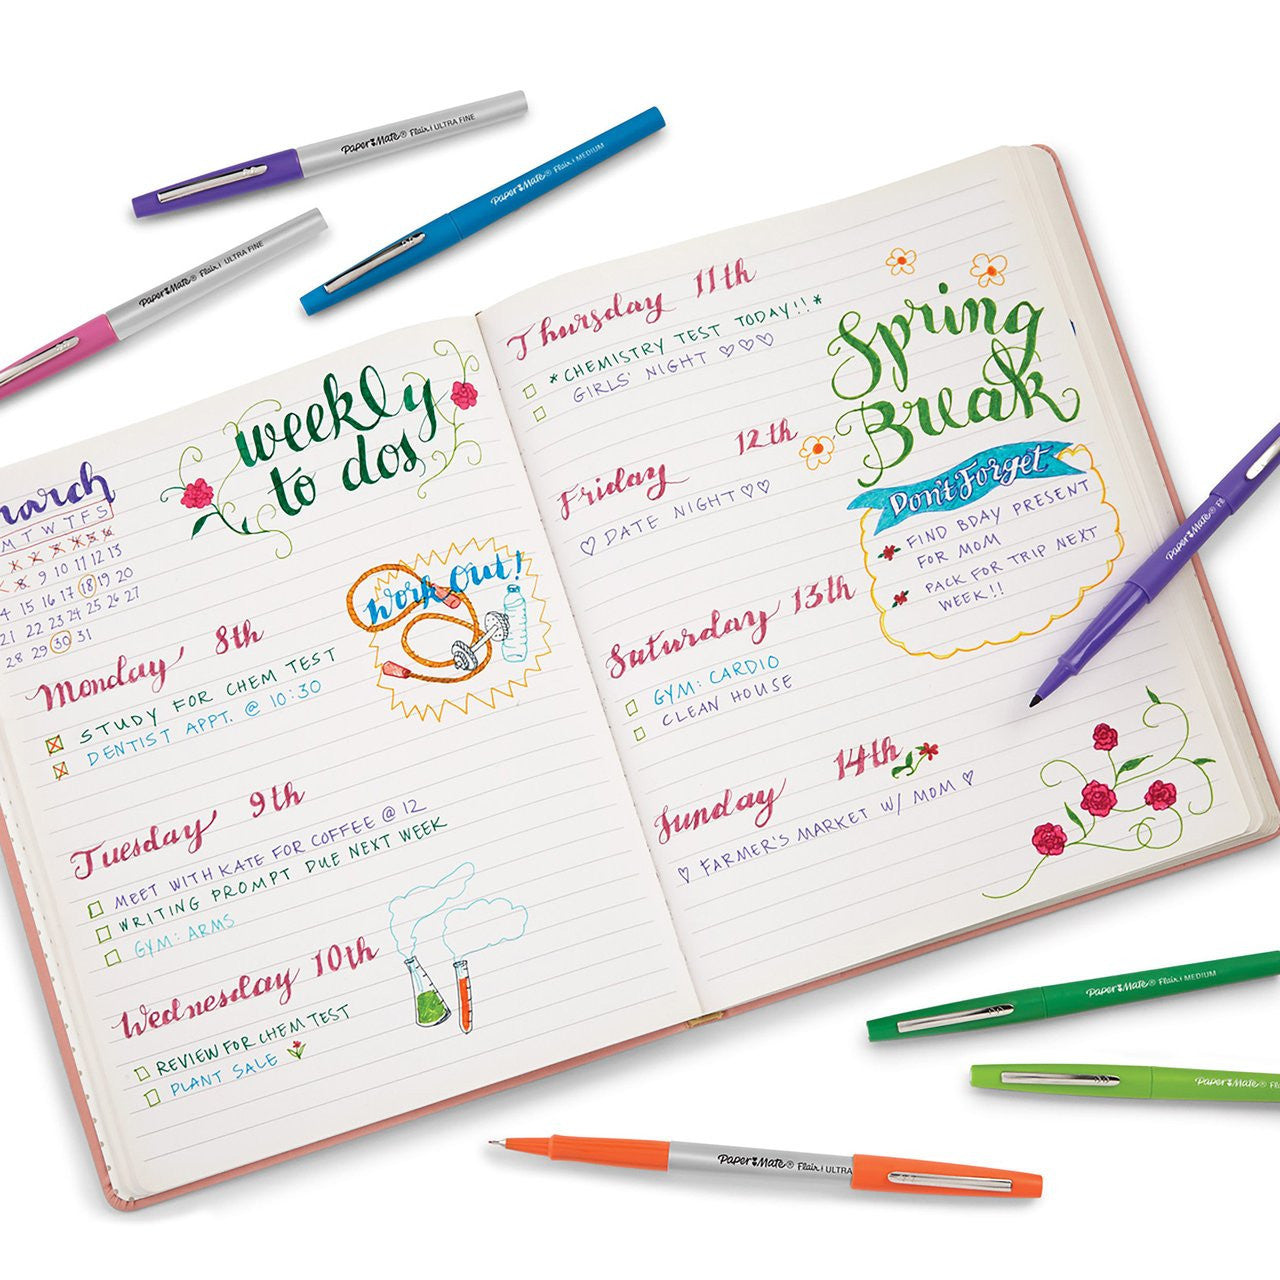 Paper Mate® Flair | ULTRA FINE
Paper Mate® Flair | MEDIUM
Paper Mate® Flair | ULTRA FINE
weekly
to dos
M T W T F S
9 10 11 12 13
15 16 17 18 19 20
21 22 23 24 25 26 27
28 29 30 31
Work Out!
Monday 8th
STUDY FOR CHEM TEST
DENTIST APPT. @ 10:30
Tuesday 9th
MEET WITH KATE FOR COFFEE @ 12
WRITING PROMPT DUE NEXT WEEK
GYM: ARMS
Wednesday 10th
REVIEW FOR CHEM TEST
PLANT SALE
Thursday 11th
*CHEMISTRY TEST TODAY!!*
GIRLS' NIGHT ♡♡♡
Friday 12th
♡ DATE NIGHT ♡♡
Saturday 13th
GYM: CARDIO
CLEAN HOUSE
Sunday 14th
♡ FARMER'S MARKET W/ MOM ♡
Spring
Break
Don't Forget
FIND BDAY PRESENT
FOR MOM
PACK FOR TRIP NEXT
WEEK!!
Paper Mate®
Paper Mate® Flair | MEDIUM
Paper Mate®
Paper Mate® Flair | ULTRA